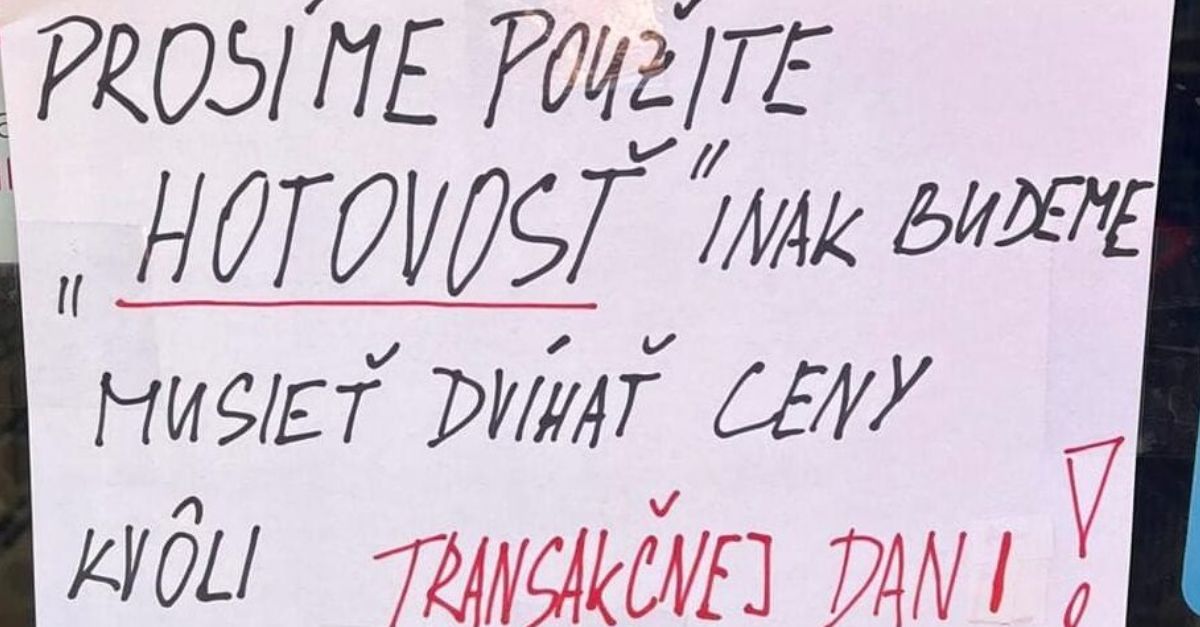 PROSÍME POUŽITE
„HOTOVOSŤ" INAK BUDEME
MUSIEŤ DVÍHAŤ CENY
KVÔLI TRANSAKČNEJ DANI!